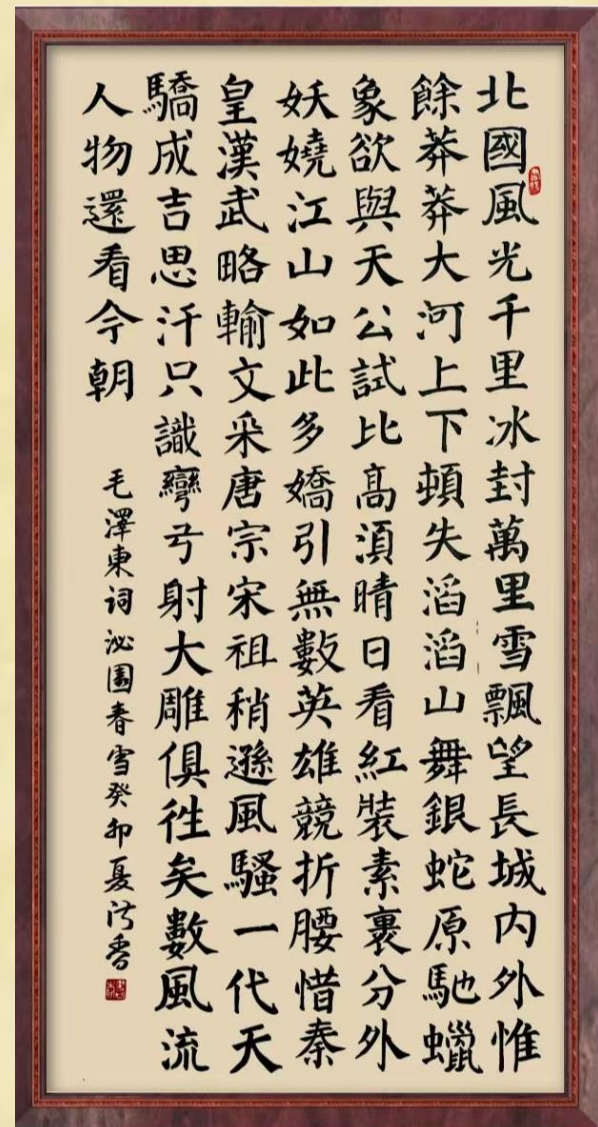 北國風光千里冰封萬里雪飄望長城内外惟
餘莽莽大河上下頓失滔滔山舞銀蛇原馳蠟
象欲與天公試比髙湏晴日看紅裝素裹分外
妖嬈江山如此多嬌引無數英雄競折腰惜秦
皇漢武略輸文采唐宗宋祖稍遜風騷一代天
驕成吉思汗只識彎弓射大雕俱徃矣數風流
人物還看今朝
毛澤東词沁園春雪癸卯夏香